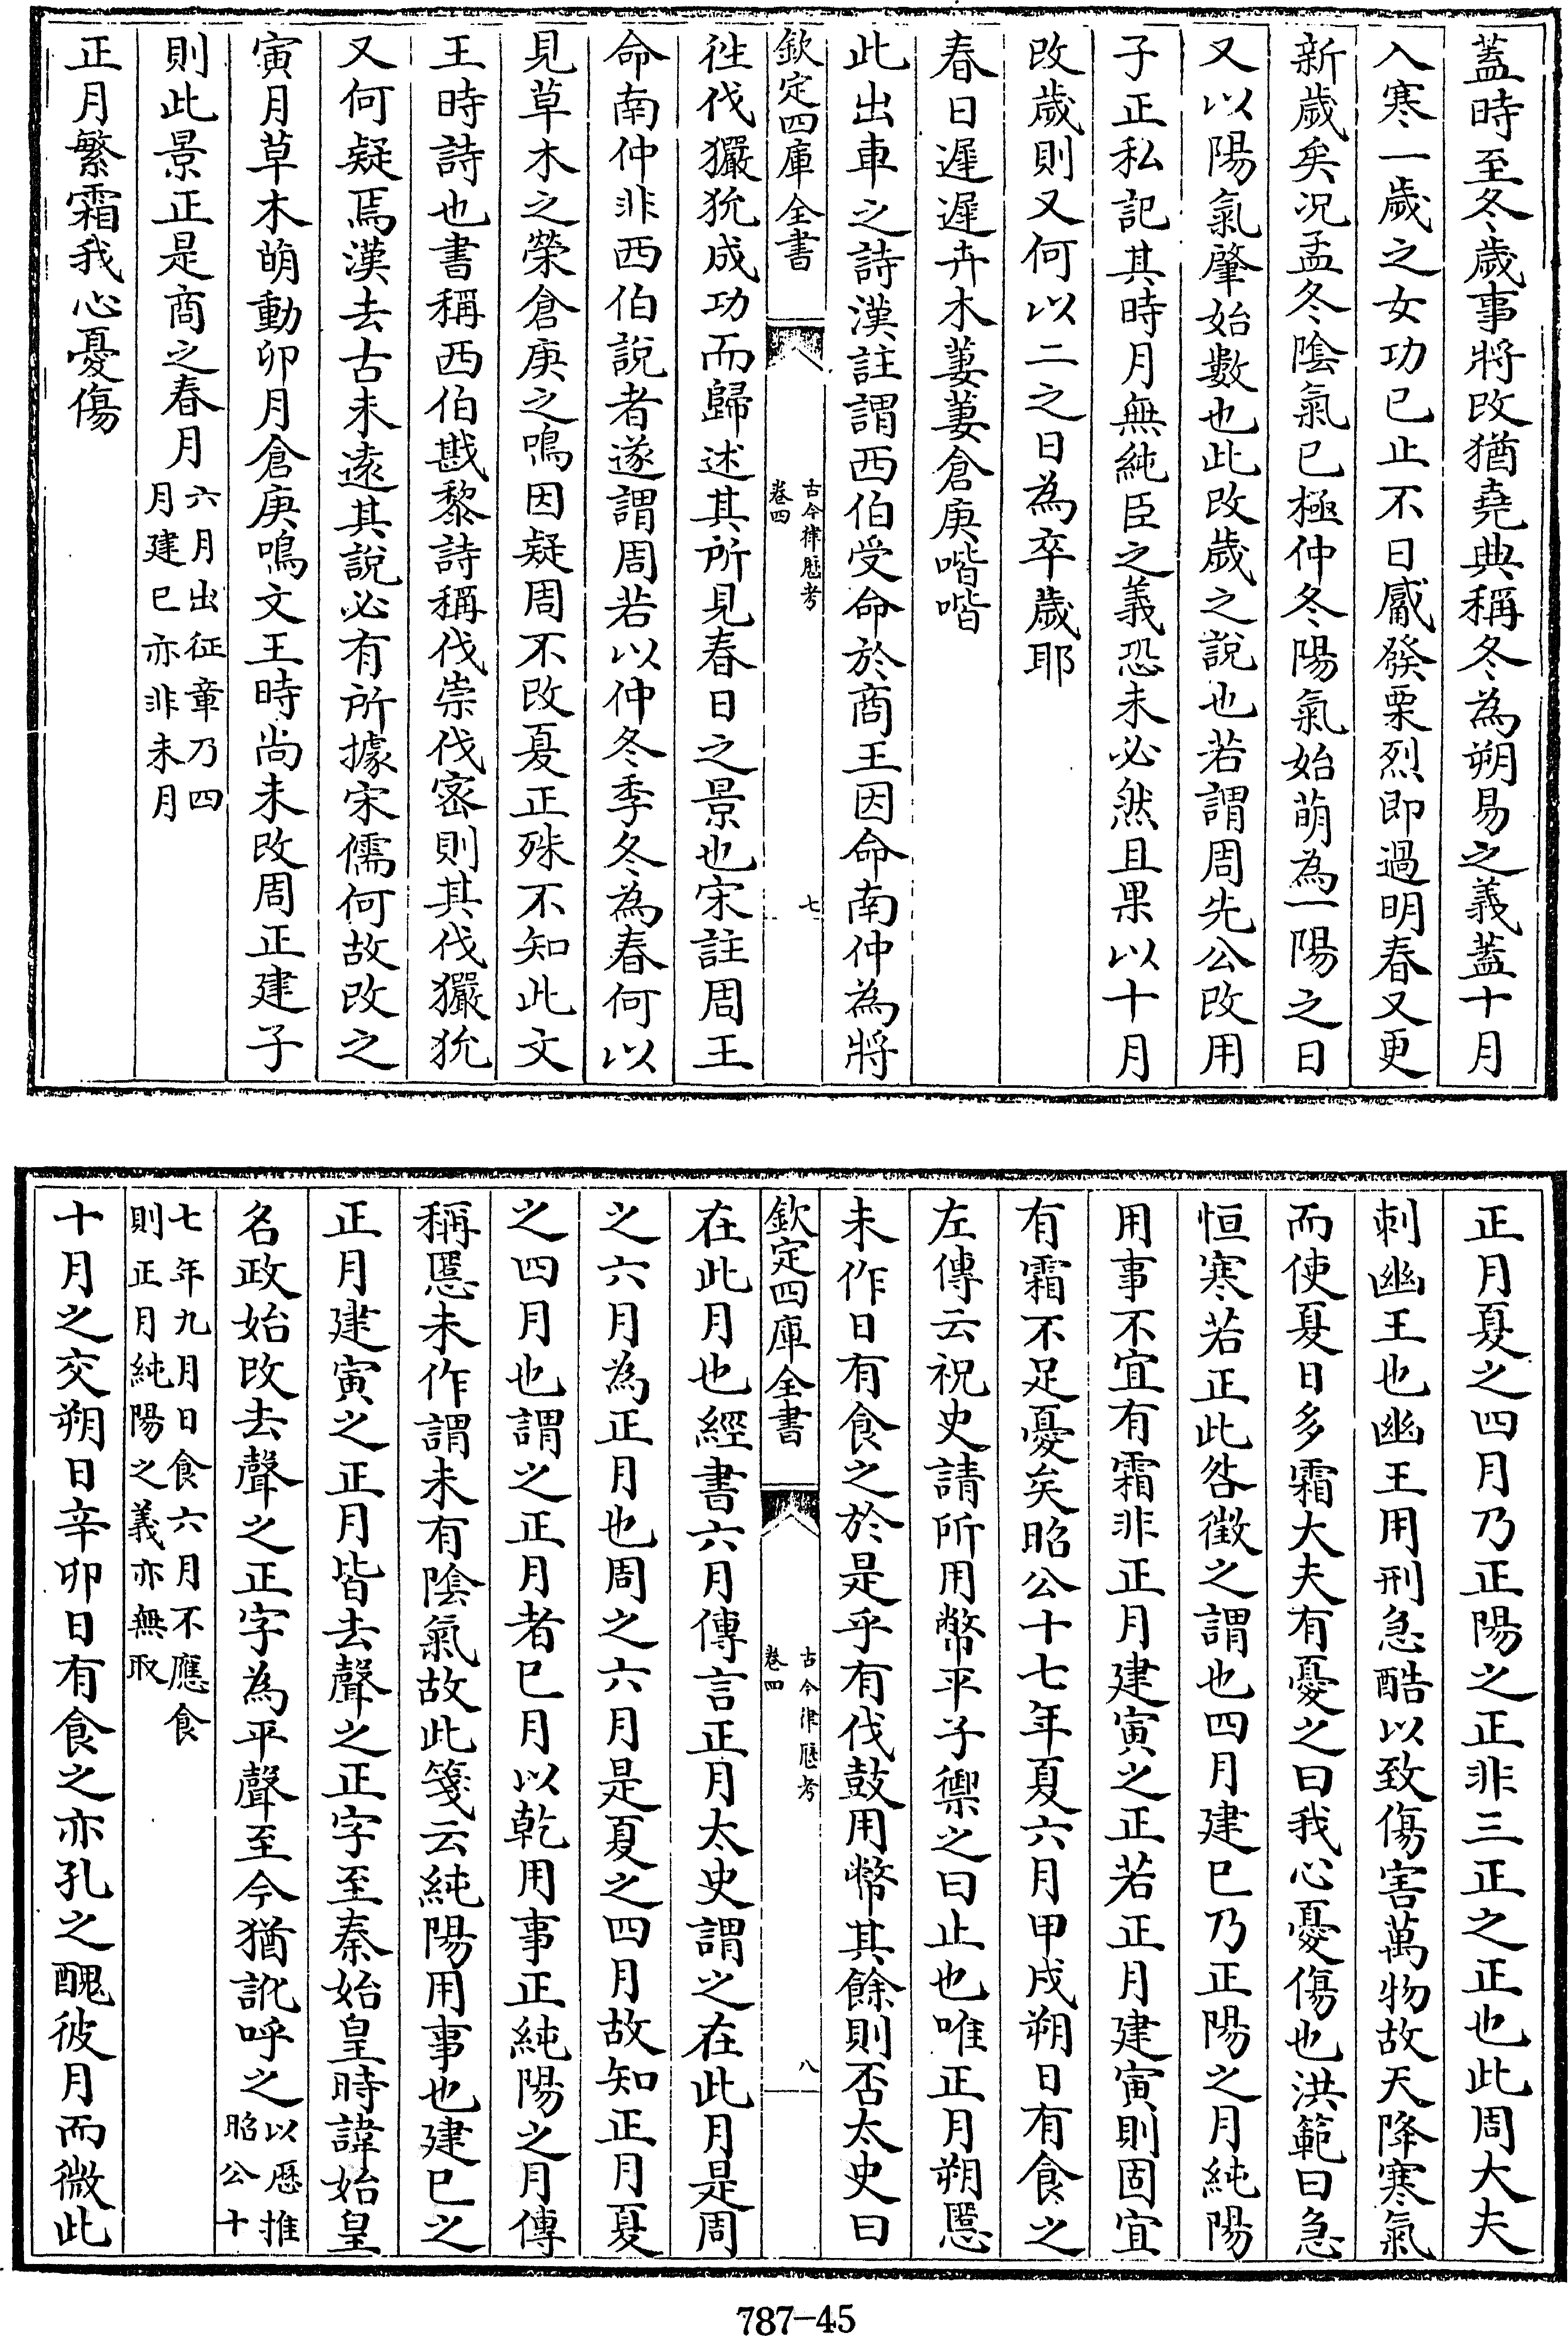 蓋時至冬歲事將改猶堯典稱冬為朔易之義蓋十月
入寒一歲之女功已止不日觱發栗烈即過明春又更
新歲矣况孟冬陰氣已極仲冬陽氣始萌為一陽之日
又以陽氣肇始數也此改歲之說也若謂周先公改用
子正私記其時月無純臣之義恐未必然且果以十月
改歲則又何以二之日為卒歲耶
春日遲遲卉木萋萋倉庚喈喈
此出車之詩漢註謂西伯受命於商王因命南仲為將
欽定四庫全書
古今律歴考
卷四
七
徃伐玁狁成功而歸述其所見春日之景也宋註周王
命南仲非西伯說者遂謂周若以仲冬季冬為春何以
見草木之榮倉庚之鳴因疑周不改夏正殊不知此文
王時詩也書稱西伯戡黎詩稱伐崇伐密則其伐玁狁
又何疑焉漢去古未逺其說必有所據宋儒何故改之
寅月草木萌動卯月倉庚鳴文王時尚未改周正建子
則此景正是商之春月六月出征章乃四
月建巳亦非未月
正月繁霜我心憂傷
正月夏之四月乃正陽之正非三正之正也此周大夫
刺幽王也幽王用刑急酷以致傷害萬物故天降寒氣
而使夏日多霜大夫有憂之曰我心憂傷也洪範曰急
恒寒若正此咎徵之謂也四月建巳乃正陽之月純陽
用事不宜有霜非正月建寅之正若正月建寅則固宜
有霜不足憂矣昭公十七年夏六月甲戌朔日有食之
左傳云祝史請所用幣平子禦之曰止也唯正月朔慝
未作日有食之於是乎有伐鼓用幣其餘則否太史曰
欽定四庫全書
古今律歴考
卷四
八
在此月也經書六月傳言正月太史謂之在此月是周
之六月為正月也周之六月是夏之四月故知正月夏
之四月也謂之正月者巳月以乾用事正純陽之月傳
稱慝未作謂未有陰氣故此箋云純陽用事也建巳之
正月建寅之正月皆去聲之正字至秦始皇時諱始皇
名政始改去聲之正字為平聲至今猶訛呼之以歴推
昭公十
七年九月日食六月不應食
則正月純陽之義亦無取
十月之交朔日辛卯日有食之亦孔之醜彼月而微此
787-45